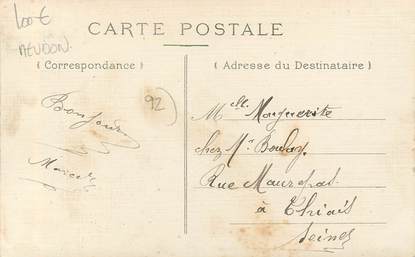 100€
MEUDON.
CARTE POSTALE
( Correspondance )
( Adresse du Destinataire )
92)
Bonjour
Marcel
Mlle Marguerite
chez Mr Boulay
Rue Maurepas
à Thiais
Seine